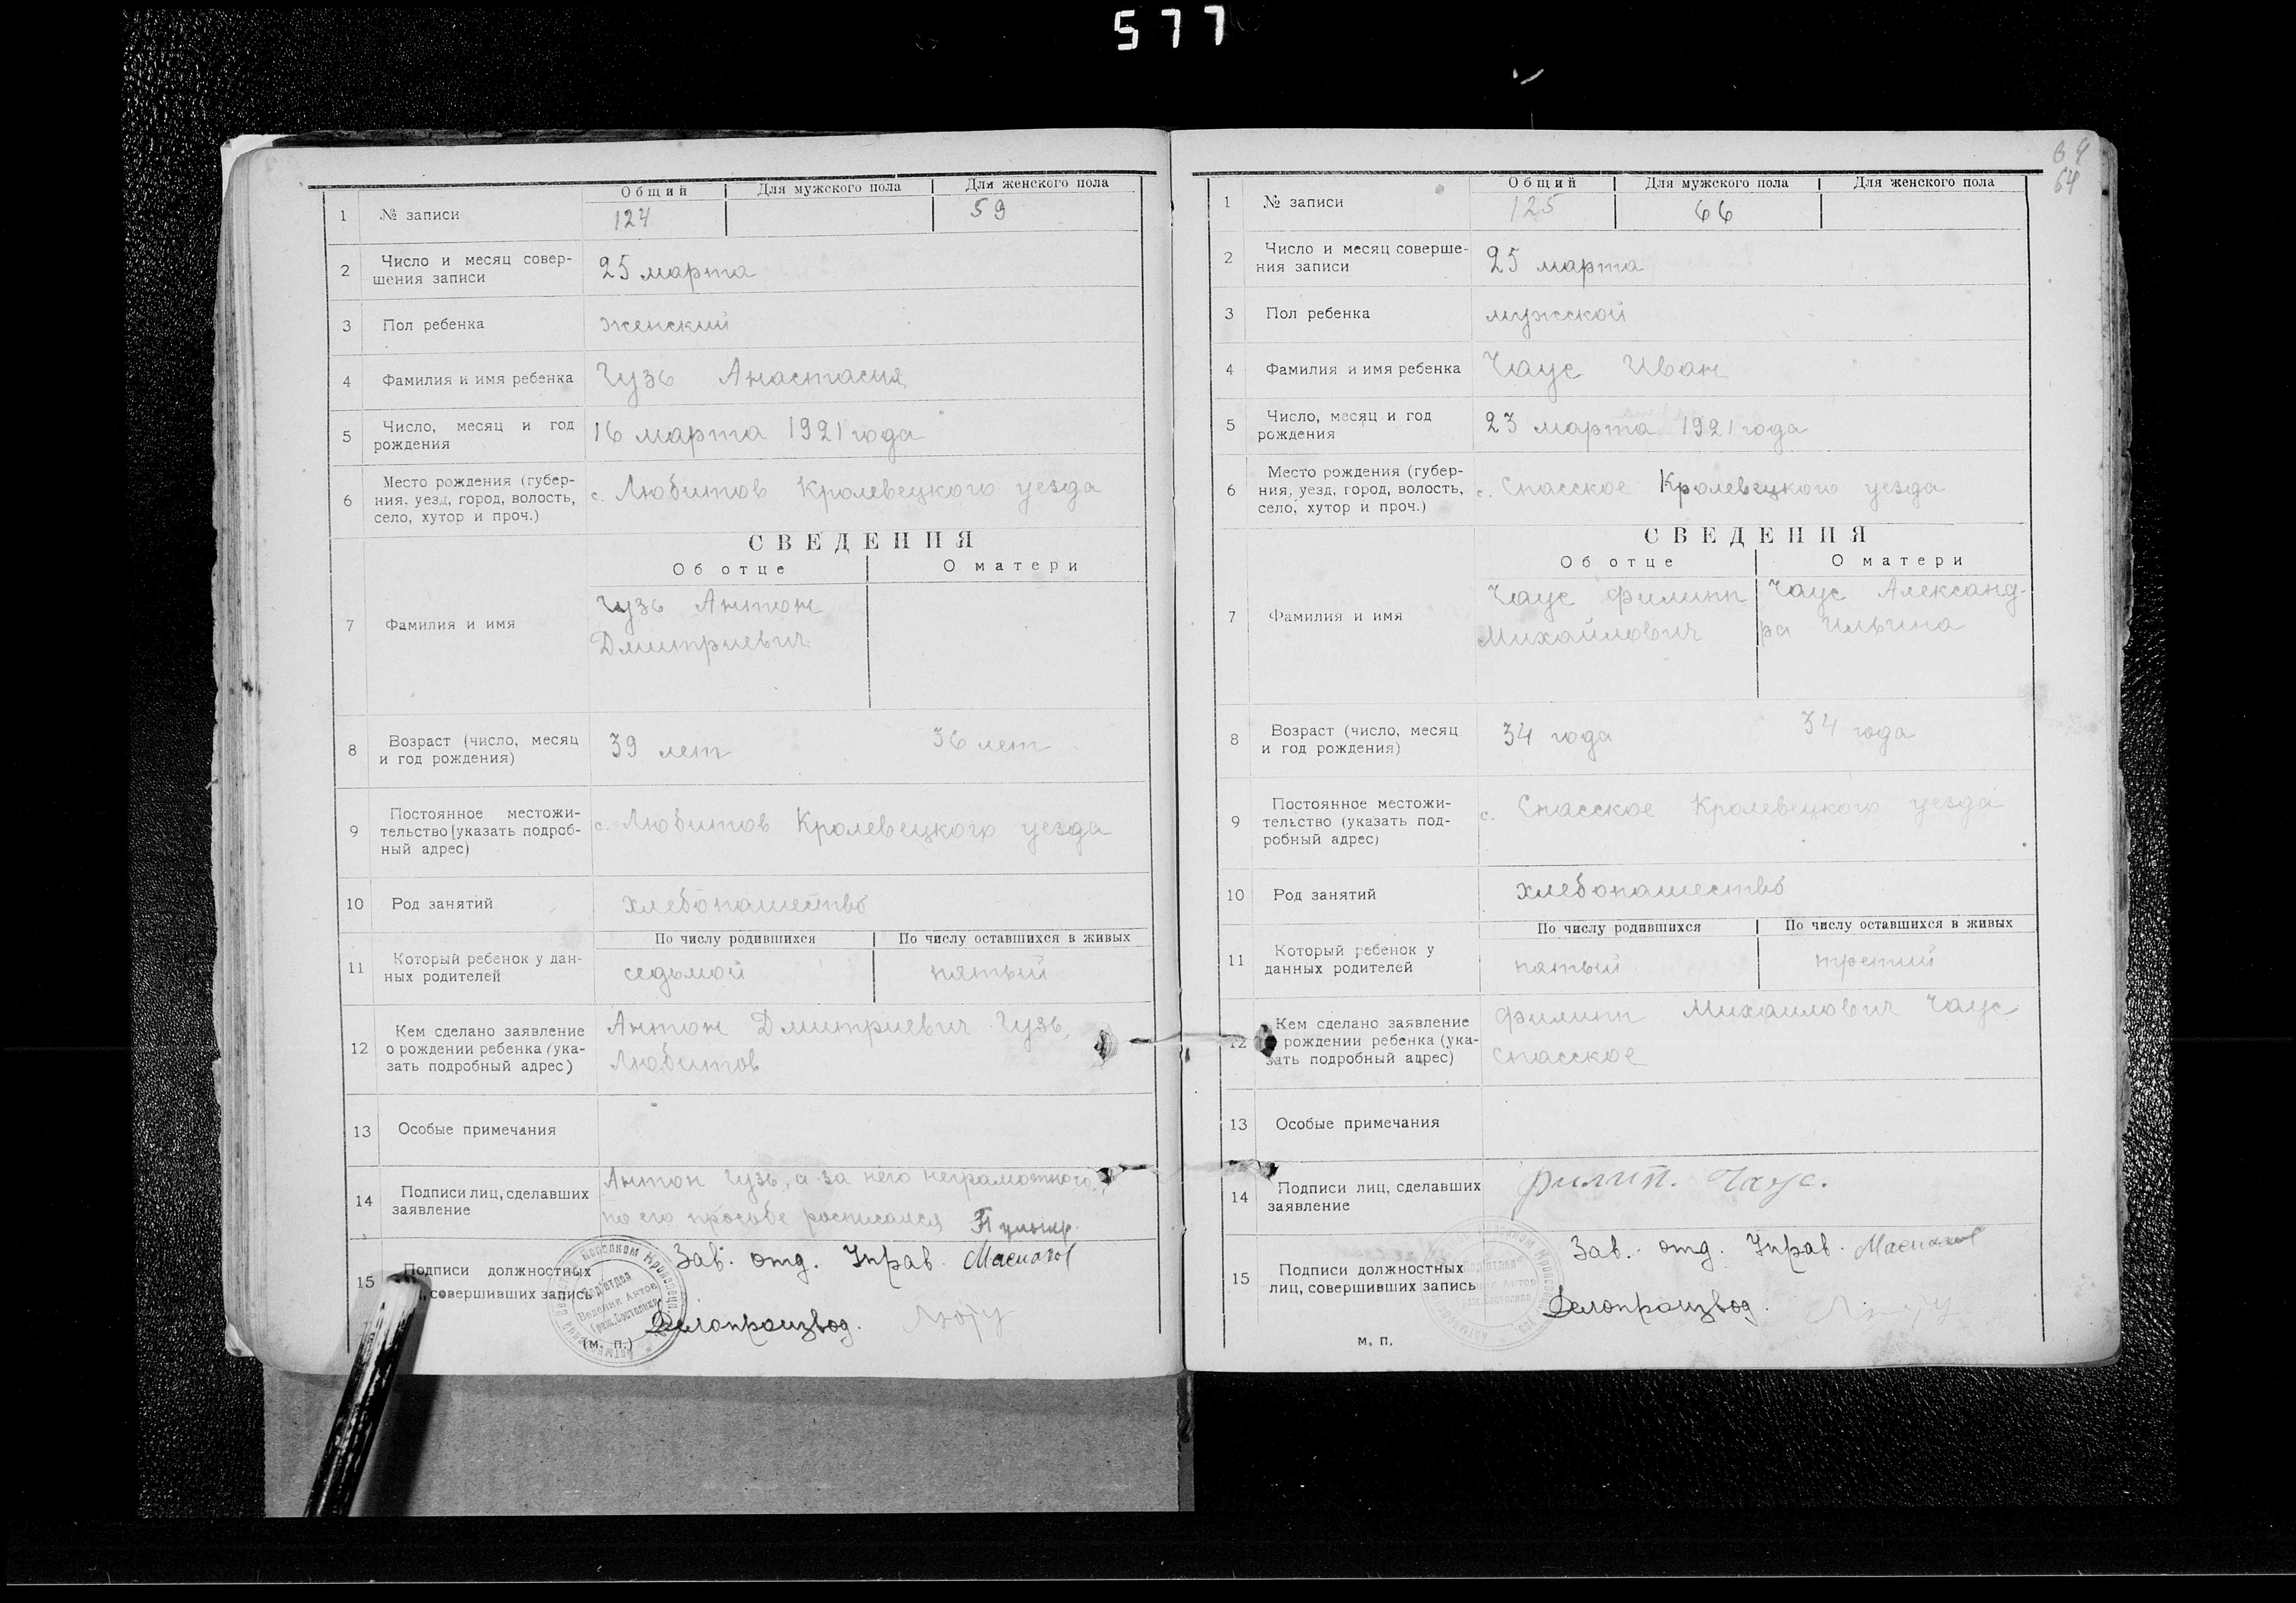 577
Общий Для мужского пола Для женского пола
1 № записи 124 59
2 Число и месяц совер-
шения записи
25 марта
3 Пол ребенка женский
4 Фамилия и имя ребенка Гузь Анастасия
5 Число, месяц и год
рождения
16 марта 1921 года
6 Место рождения (губер-
ния, уезд, город, волость,
село, хутор и проч.)
с. Любитов Кролевецкого уезда
СВЕДЕНИЯ
Об отце О матери
7 Фамилия и имя
Гузь Антон
Дмитриевич
8 Возраст (число, месяц
и год рождения)
39 лет 36 лет
9 Постоянное местожи-
тельство (указать подроб-
ный адрес)
с. Любитов Кролевецкого уезда
10 Род занятий хлебопашество
По числу родившихся По числу оставшихся в живых
11 Который ребенок у дан-
ных родителей
седьмой пятый
12 Кем сделано заявление
о рождении ребенка (ука-
зать подробный адрес)
Антон Дмитриевич Гузь,
Любитов
13 Особые примечания
14 Подписи лиц, сделавших
заявление
Антон Гузь, а за него неграмотного
по его прозьбе росписался
15 Подписи должностных
, совершивших запись
Зав. отд. Управ.
Делопроизвод.
Подотдел
Ведения Актов
Граж. Состояния
(м. п.)
64
64
Общий Для мужского пола Для женского пола
1 № записи 125 66
2 Число и месяц соверше-
ния записи
25 марта
3 Пол ребенка мужской
4 Фамилия и имя ребенка Чаус Иван
5 Число, месяц и год
рождения
23 марта 1921 года
6 Место рождения (губер-
ния, уезд, город, волость,
село, хутор и проч.)
с. Спасское Кролевецкого уезда
СВЕДЕНИЯ
Об отце О матери
7 Фамилия и имя
Чаус Филипп Чаус Александ-
Михайлович ра Ильина
8 Возраст (число, месяц
и год рождения)
34 года 34 года
9 Постоянное местожи-
тельство (указать под-
робный адрес)
с. Спасское Кролевецкого уезда
10 Род занятий хлебопашество
По числу родившихся По числу оставшихся в живых
11 Который ребенок у
данных родителей
пятый третий
12 Кем сделано заявление
рождении ребенка (ука-
зать подробный адрес)
Филипп Михаилович Чаус
Спасское
13 Особые примечания
14 Подписи лиц, сделавших
заявление
Филип. Чаус.
15 Подписи должностных
лиц, совершивших запись
Зав. отд. Управ.
Делопроизвод.
м. п.